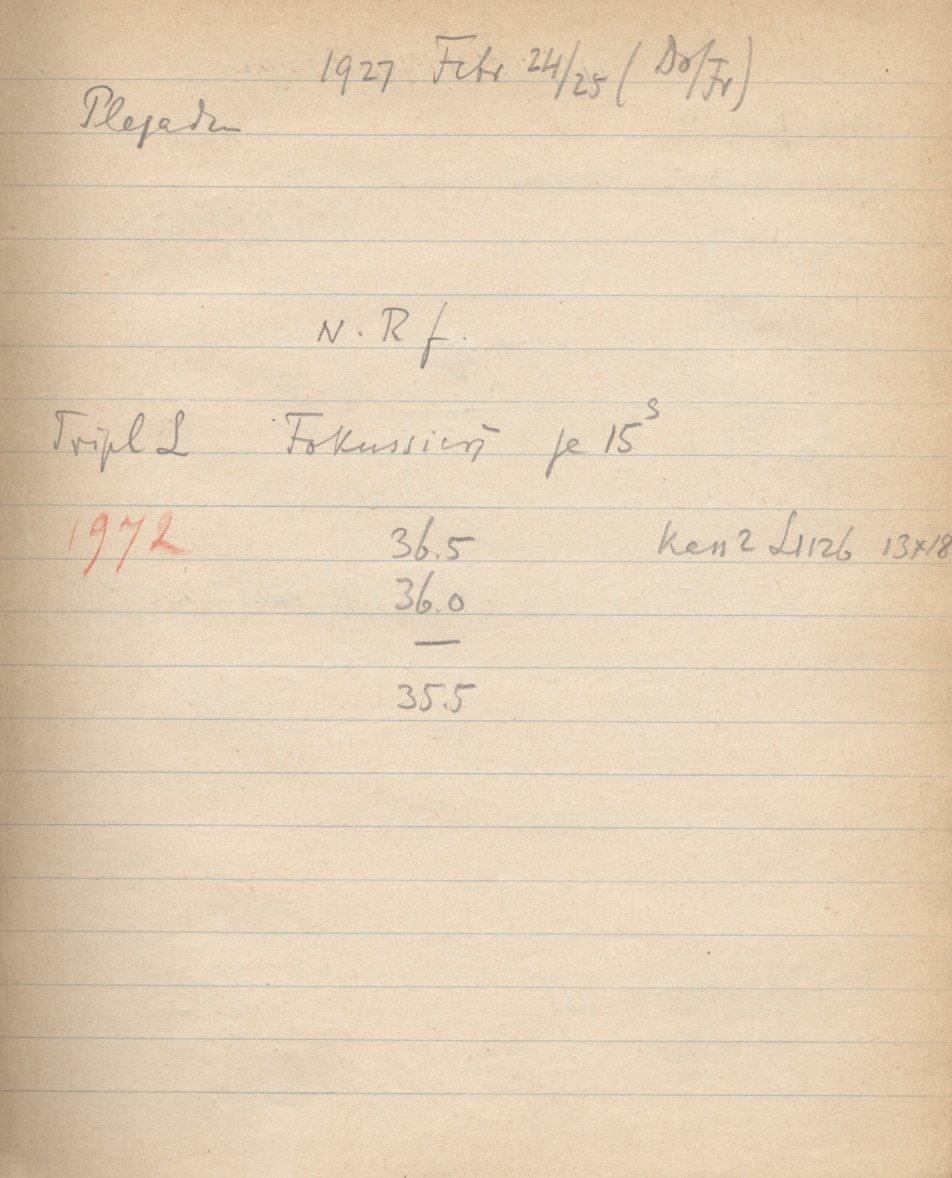 1927 Febr 24/25 (Do/Fr)
Plejaden
N. R f.
Tripl L Fokussier je 15s
1972 36.5 L1126 13x18
36.0
—
35.5